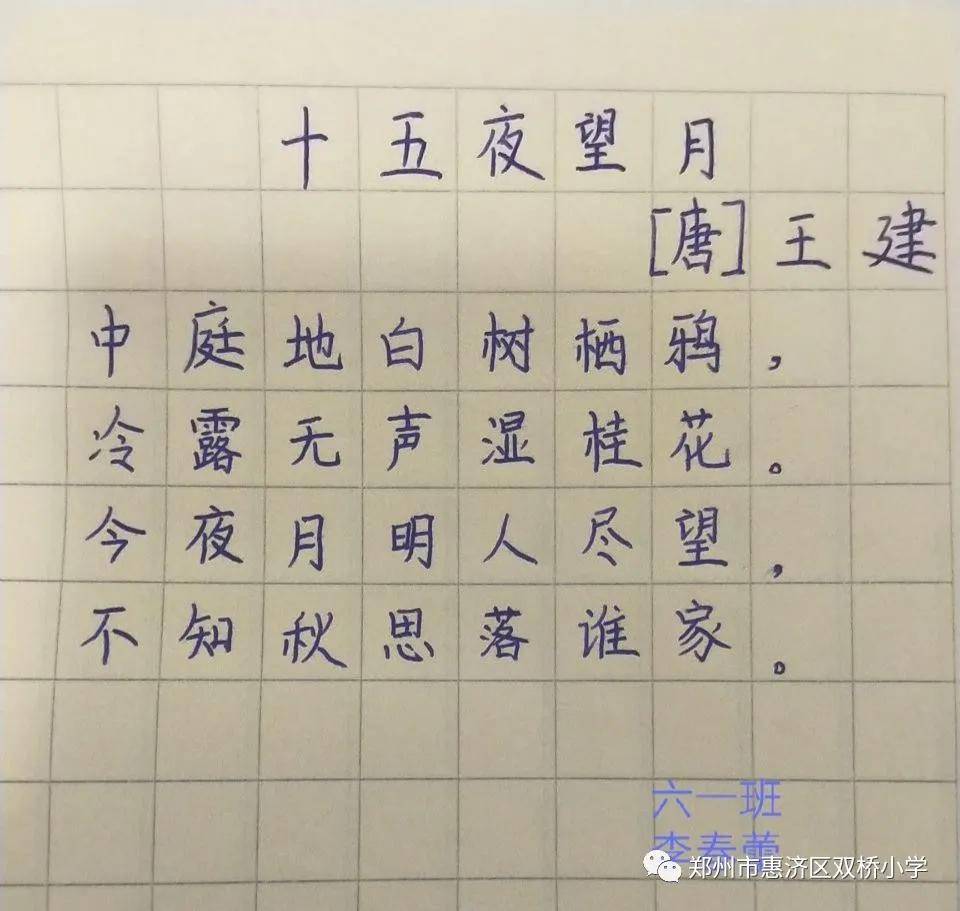 十五夜望月
[唐]王建
中庭地白树栖鸦，
冷露无声湿桂花。
今夜月明人尽望，
不知秋思落谁家。
六一班
李春蕾
郑州市惠济区双桥小学